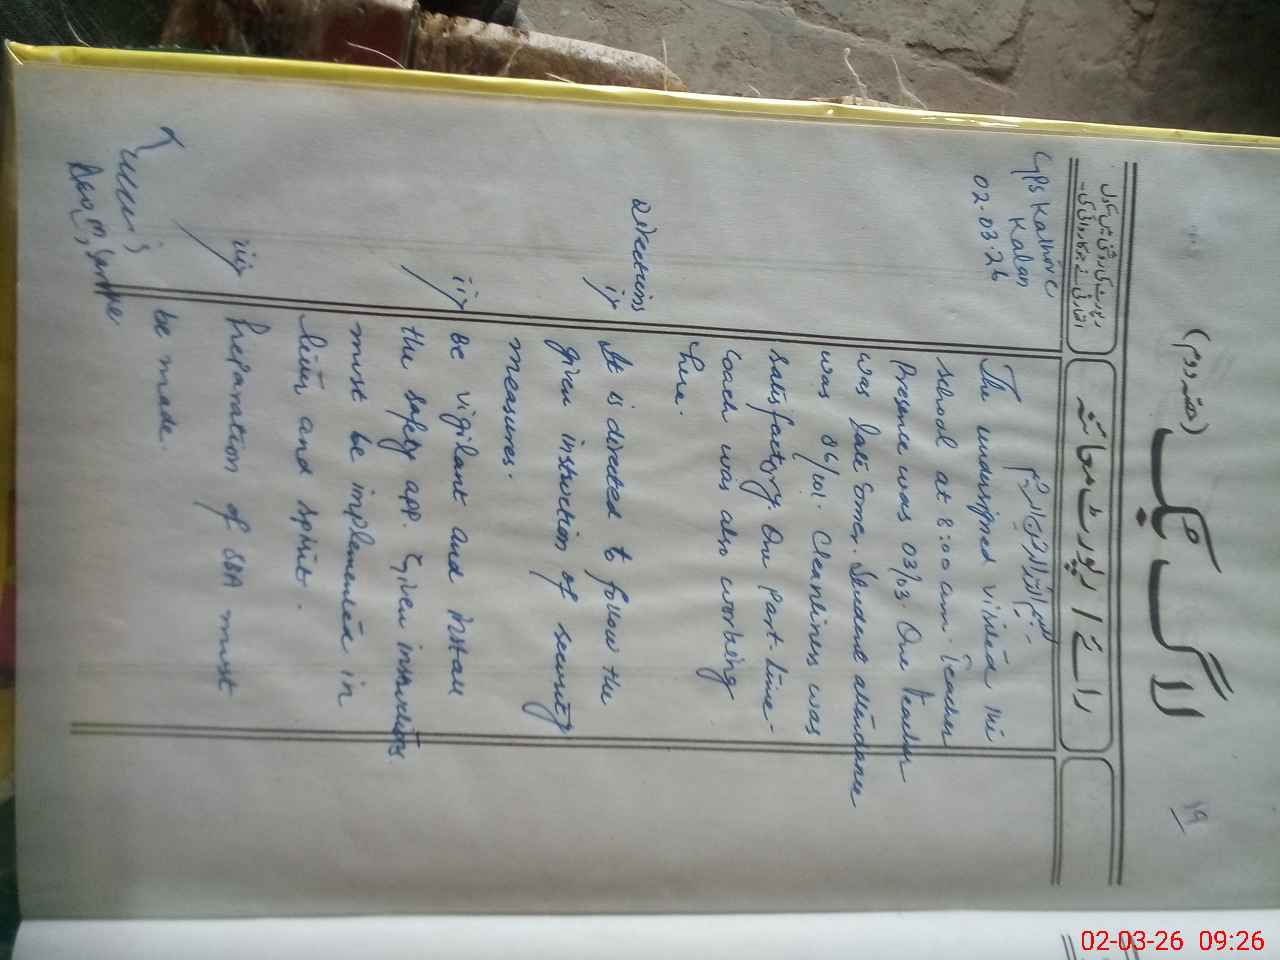 لاگ بک (حصہ دوم)
19
رائے / رپورٹ معائنہ
بسم اللہ الرحمٰن الرحیم
GPS Kalhore
Kalan
02.03.26
The undersigned visited the
school at 8:00 am. Teacher
Presence was 03/03. One teacher
was late comer. Student attendance
was Cleanliness was
satisfactory. One part-time
coach was also working
here.
Directions
i) It is directed to follow the
given instruction of security
measures.
ii) Be vigilant and install
the safety app. Given instructions
must be implemented in
and spirit.
iii) Preparation of SBA must
be made.
02-03-26 09:26